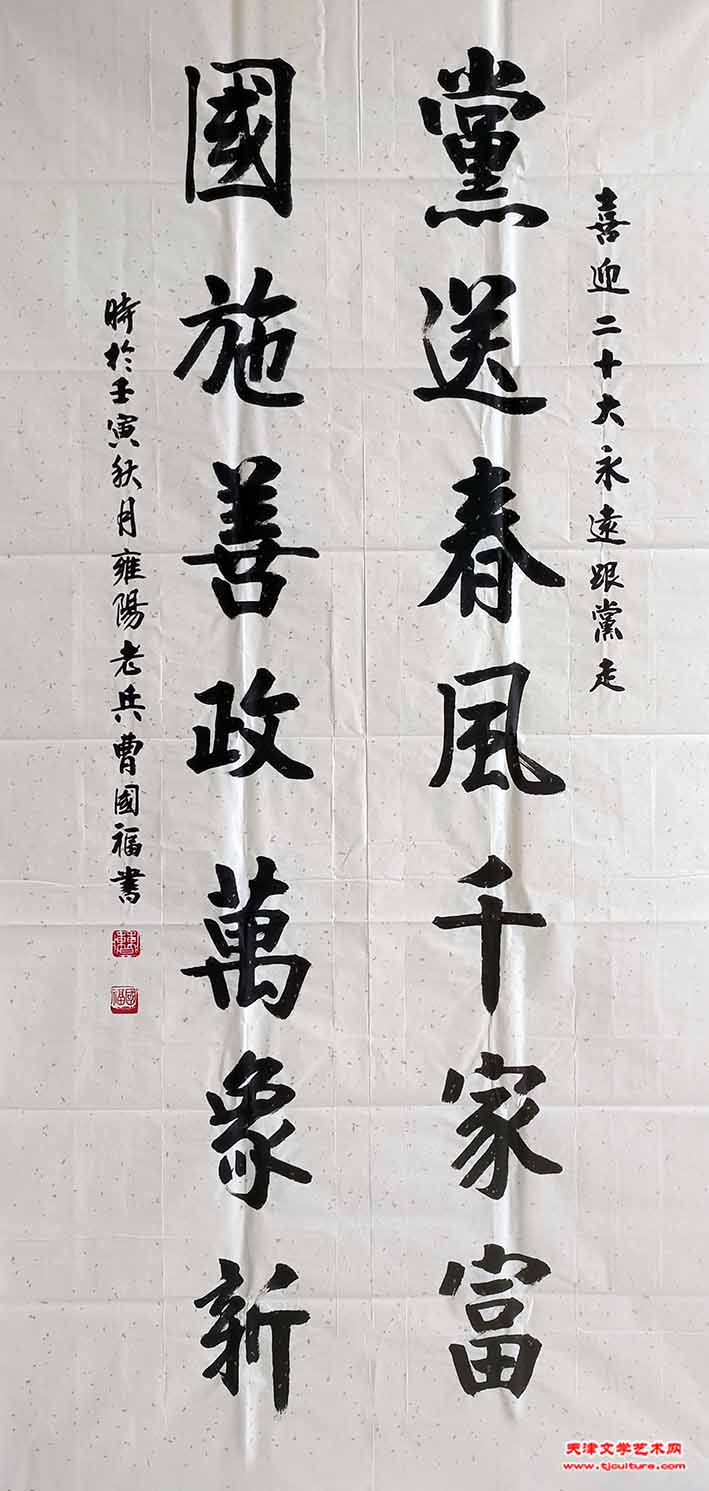 喜迎二十大永遠跟黨走
黨送春風千家富
國施善政萬象新
時於壬寅秋月雍陽老兵曹國福書
曹
國福
天津文学艺术网
www.tjculture.com